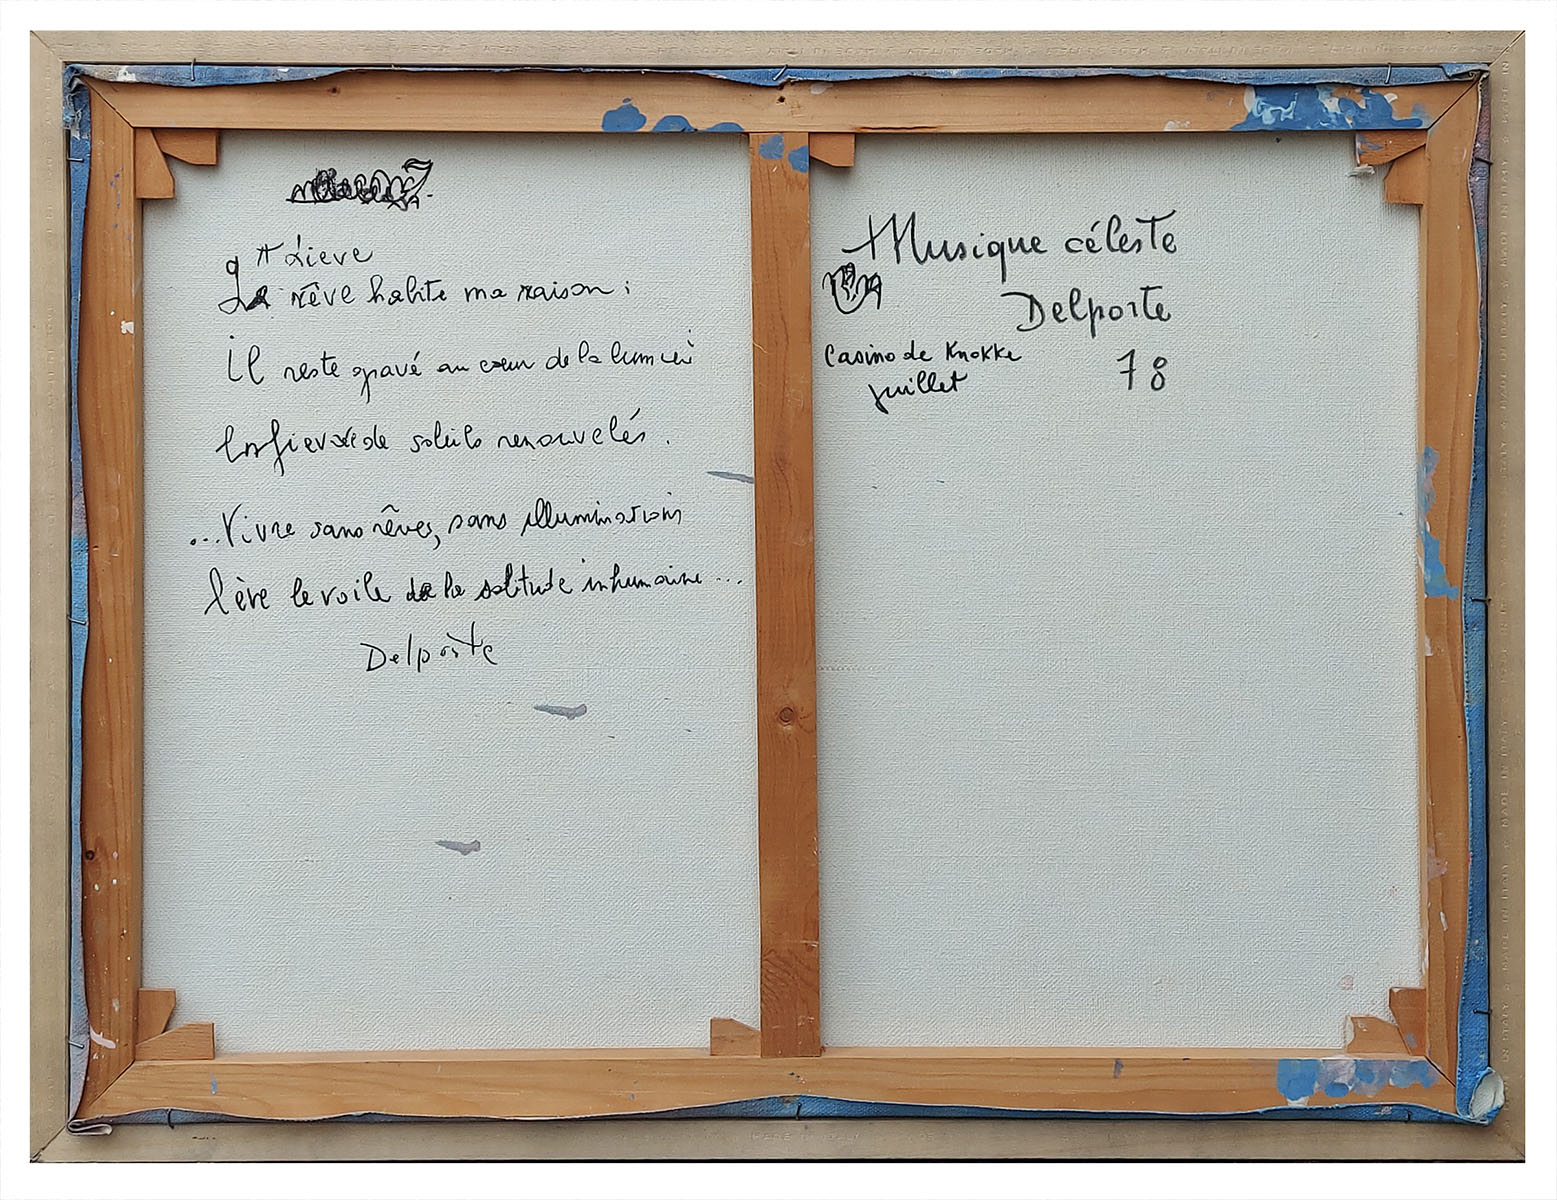 A Lieve
Le rêve habite ma raison :
il reste gravé au cœur de la lumière
de soleils renouvelés.
...Vivre sans rêves, sans illuminations
lève le voile de la solitude inhumaine...
Delporte
Musique céleste
Delporte
Casino de Knokke
78
juillet